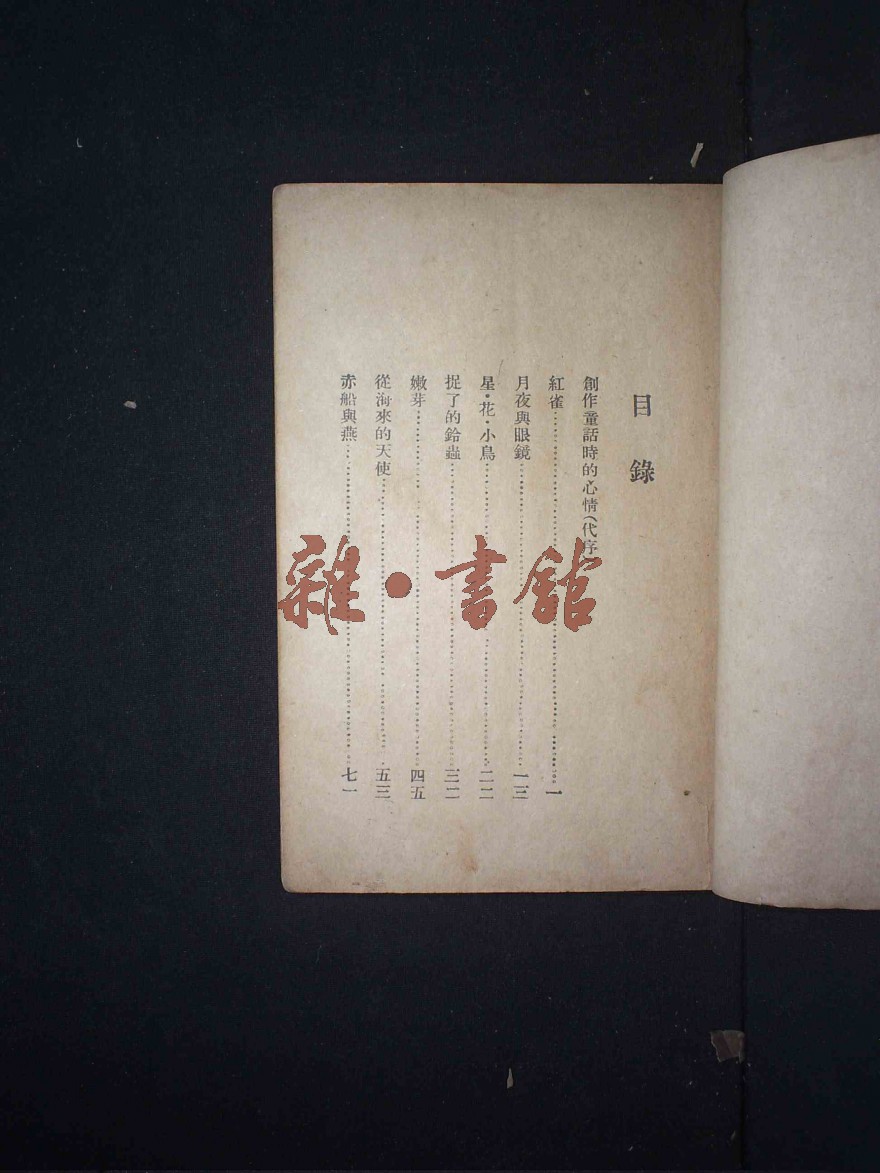 目錄
創作童話時的心情（代序）
紅雀……一
月夜與眼鏡……一三
星·花·小鳥……二二
捉了的鈴蟲……三二
嫩芽……四五
從海來的天使……五三
赤船與燕……七一
雜·書館